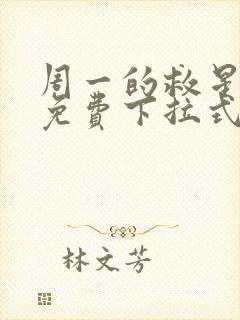 周一的救星
免費下拉式
林文芳